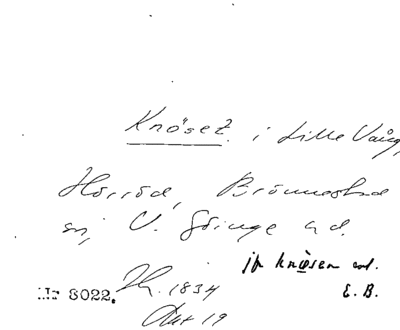 Knöset i Lille Vång,
Hörröd, Brönnestad
sn, V. Göinge hd.
jfr knøsen
E. B.
Nr 8022.
1834
Akt 19